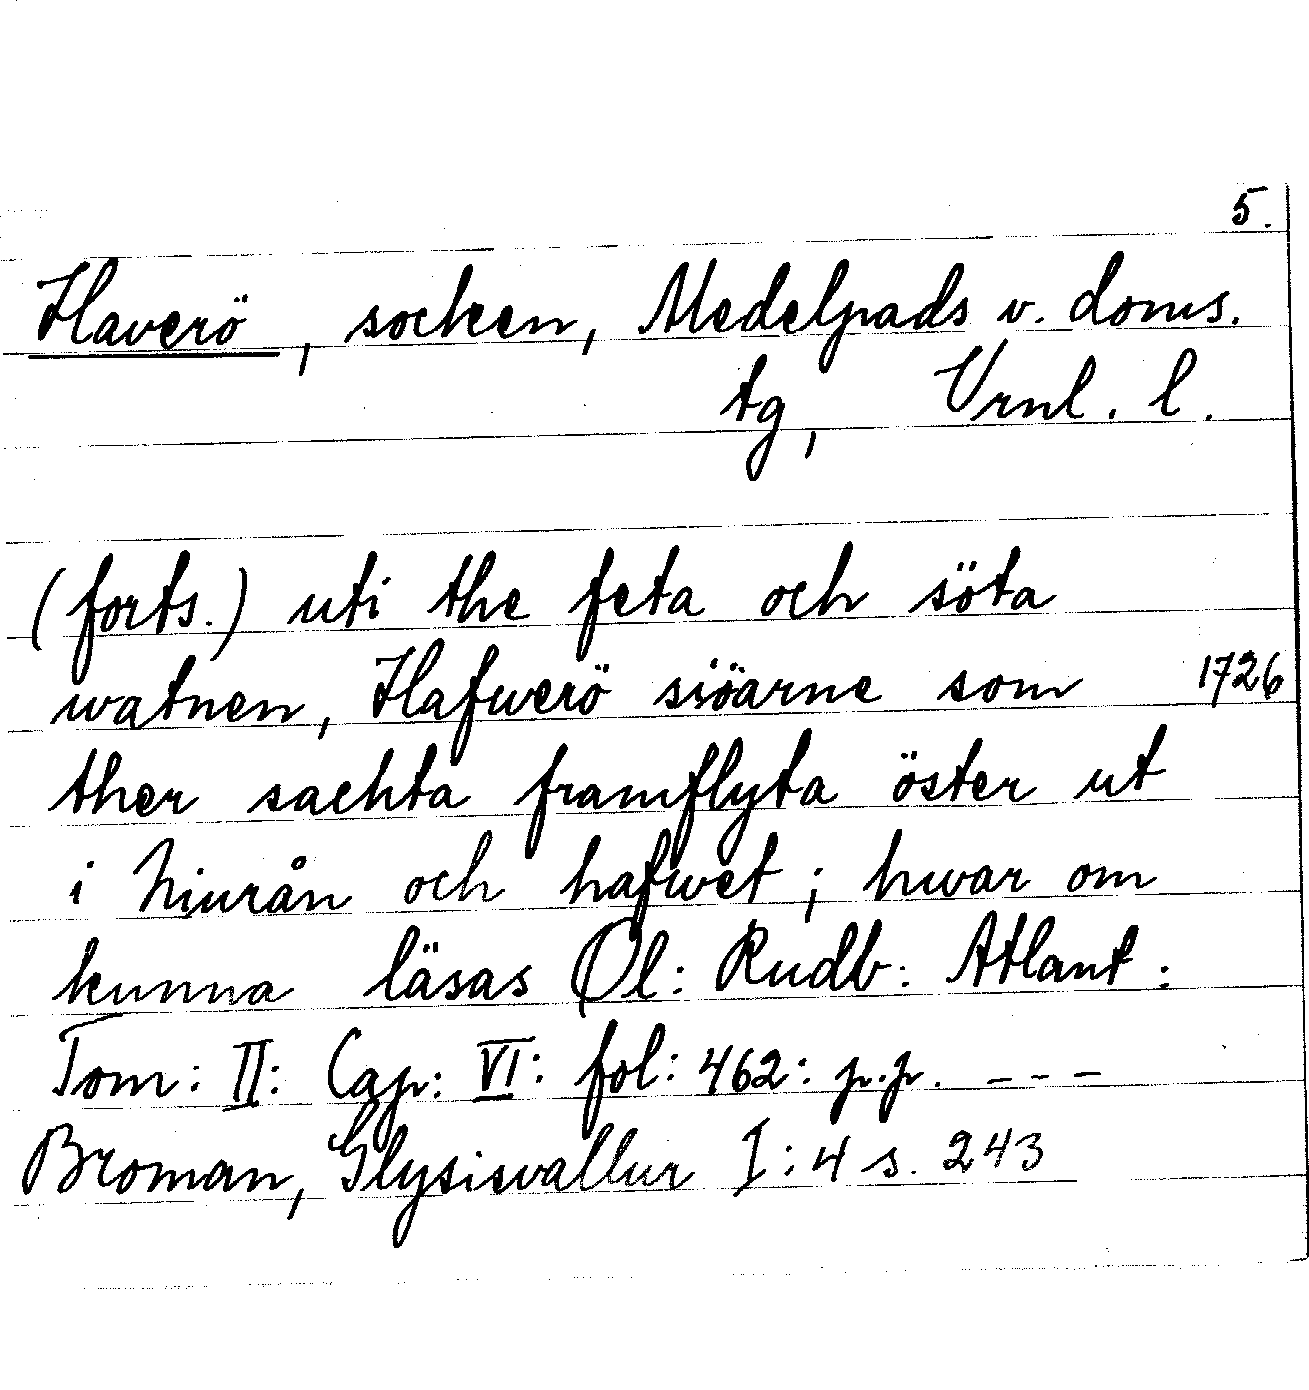 5.
Haverö, socken, Medelpads v. doms.
tg, Vrnl. l.
(forts.) uti the feta och söta
watnen, Hafwerö siöarne som 1726
ther sachta framflyta öster ut
i Niurån och hafwet; hwar om
kunna läsas Ol: Rudb: Atlant:
Tom: II: Cap: VI: fol: 462: p.p. ---
Broman, Glysisvallur I:4 s. 243